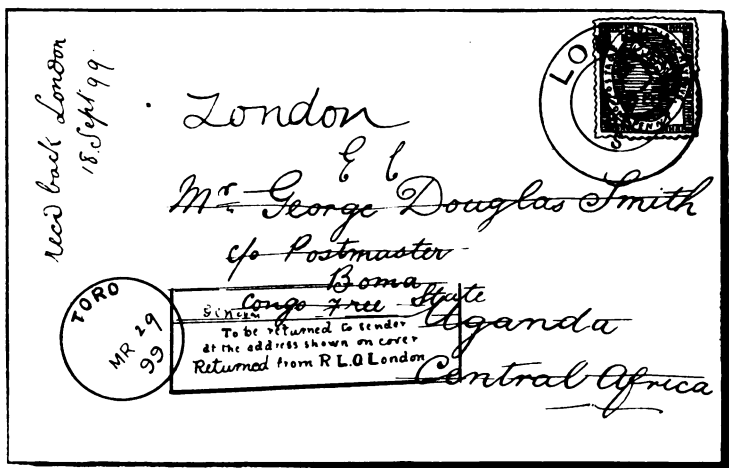 recd back London
18. Sept 99.
London
E C
Mr. George Douglas Smith
c/o Postmaster
Boma
Congo Free State
Uganda
Central Africa
To be returned to sender
at the address shown on cover
Returned from R L.O London
TORO
MR 29
99
LO